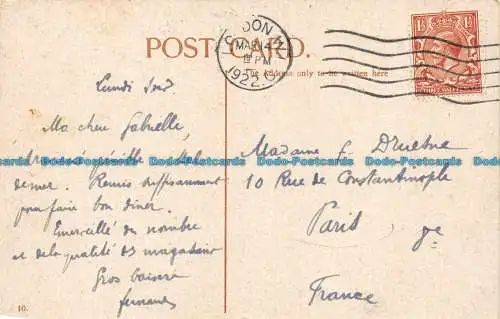 POST CARD.
LONDON
MAR 14
PM
1922
The Address only to be written here
Lundi soir
Ma chère Gabrielle,
de mer. Remis suffisamment
pour faire bon dîner.
Emerveillé du nombre
et de la qualité des magasins
Gros baisers
Madame
10 Rue de Constantinople
Paris
France
10.
Dodo-Postcards Dodo-Postcards Dodo-Postcards Dodo-Postcards